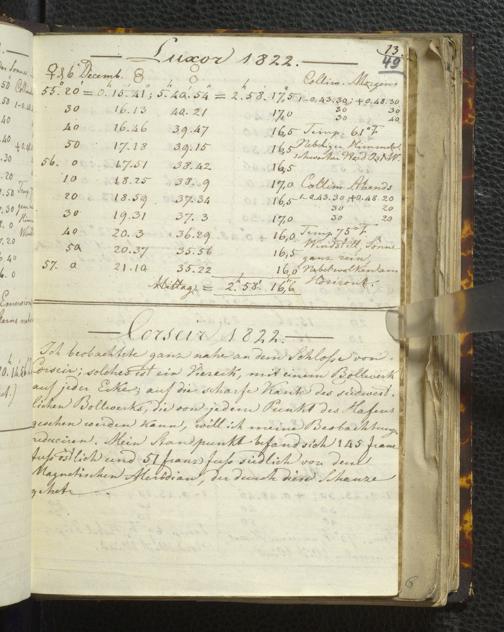 13
49
Luxor 1822.
♀ d 6 Decemb.
Collim. Morgens
55. 20 = 0. 15. 41; 5. 40. 54 = 2. 58. 17,5 1-0.43.30; +0.48.30
30 16.13 40.21 17,0 30 30
40 16.46 39.47 16,5 Temp. 61° F
50 17.18 39.15 16,5
56. 0 17.51 38.42 16,5
10 18.25 38.9 17,0 Collim Abends
20 18.59 37.34 16,5 1-0.43.30 +0.48.20
30 19.31 37.3 17,0 30 20
40 20.3 36.29 16,0 Temp 75° F
50 20.37 35.56 16,5 Windstill, Sonne
57. 0 21.10 35.22 16,0 ganz rein,
Nebelwolken am
Mittag = 2. 58. 16,6 Horizont.
Corseir 1822.
Ich beobachtete ganz nahe an dem Schlosse von
Corseir; solches ist ein Viereck, mit einem Bollwerk
auf jeder Ecke; auf die scharfe Kante des südwest-
lichen Bollwerks, die von jedem Punkt des Hafens
gesehen werden kann, will ich meine Beobachtung
reduciren. Mein Standpunkt befand sich 145 franz
fuss östlich und 51 franz fuss südlich von dem
Magnetischen Meridian, der durch diese Schanze
gehet.
6